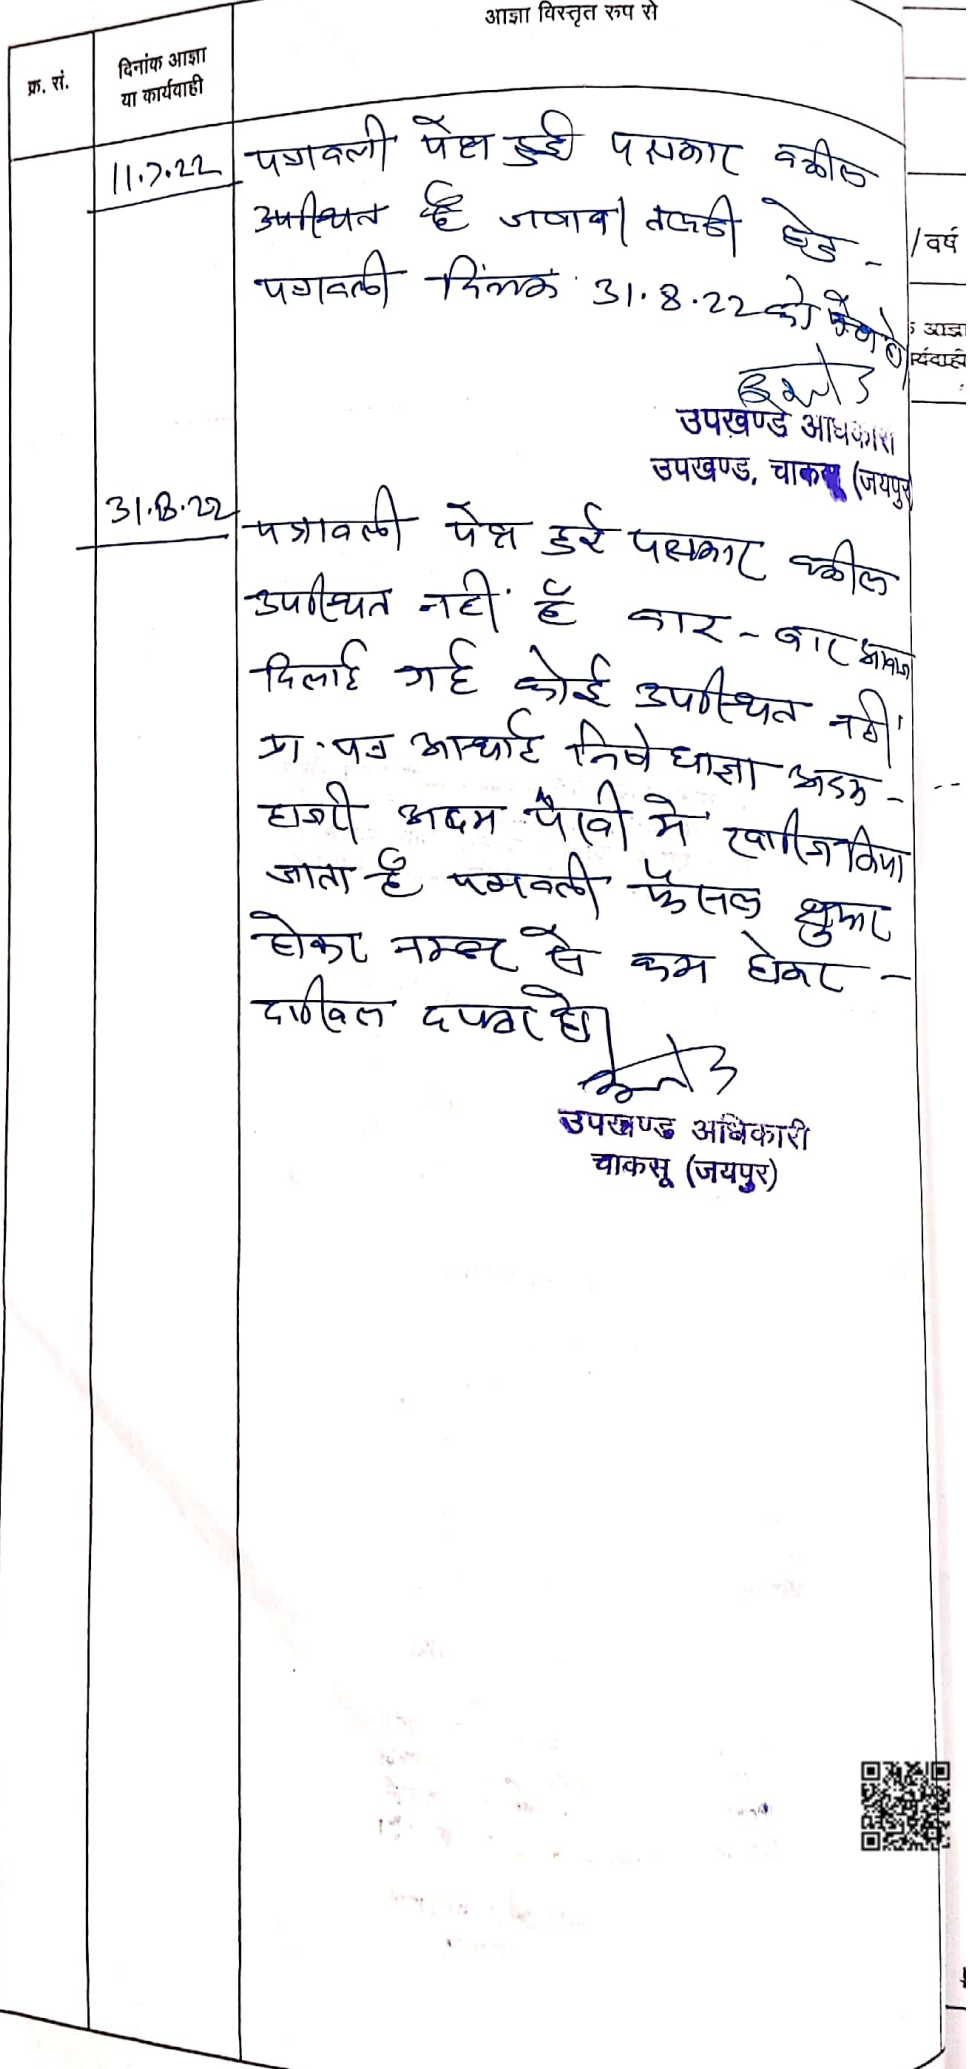 आज्ञा विस्तृत रुप से
क्र. सं.
दिनांक आज्ञा
या कार्यवाही
/ वर्ष
11.7.22
पत्रावली पेश हुई पक्षकार वकील
उपस्थित है जवाब तलबी हेतु -
पत्रावली दिनांक 31.8.22 को पेश हो
उपखण्ड अधिकारी
उपखण्ड, चाकसू (जयपुर)
31.8.22
पत्रावली पेश हुई पक्षकार वकील
उपस्थित नहीं है बार - बार आवाज
दिलाई गई कोई उपस्थित नहीं
प्रा. पत्र अस्थाई निषेधाज्ञा अदम -
हाजरी अदम पैरवी में खारिज किया
जाता है पत्रावली फैसल शुमार
होकर नम्बर से कम होकर -
दाखिल दफ्तर हो।
उपखण्ड अधिकारी
चाकसू (जयपुर)